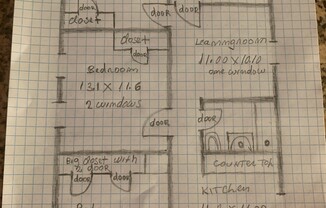 door
closet
door
door
closet
door
Leamingroom
11.00 X 10.10
one window
door
Bedroom
13.1 X 11.6
2 windows
door
door
Big closet with
door
door
door
COUNTER TOP
KITCHEN